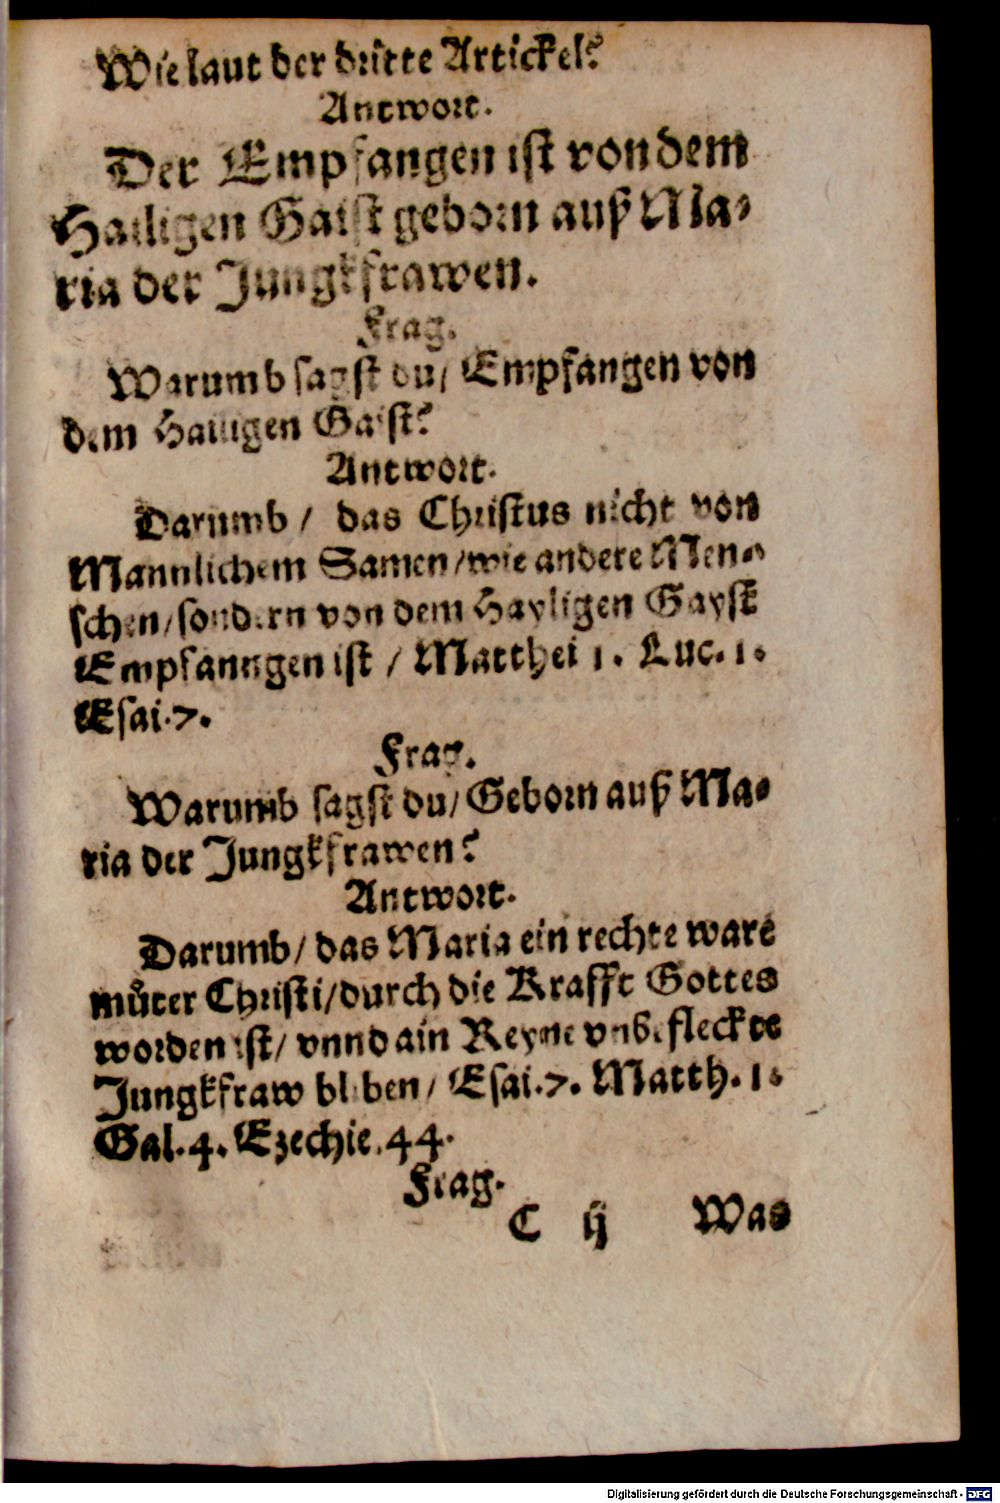 Wie laut der dritte Artickel?
Antwort.
Der Empfangen ist von dem
Hailigen Gaist geborn auß Ma-
ria der Jungkfrawen.
Frag.
Warumb sagst du/ Empfangen von
dem Hailigen Gaist?
Antwort.
Darumb / das Christus nicht von
Mannlichem Samen/wie andere Men-
schen/sondern von dem Hayligen Gayst
Empfanngen ist / Matthei 1. Luc. 1.
Esai.7.
Frag.
Warumb sagst du/ Geborn auß Ma-
ria der Jungkfrawen?
Antwort.
Darumb/ das Maria ein rechte ware
muͦter Christi/durch die Krafft Gottes
worden ist/ vnnd ain Reyne vnbefleckte
Jungkfraw bliben/ Esai.7. Matth. 1.
Gal.4. Ezechie.44.
Frag.
C ij Was
Digitalisierung gefördert durch die Deutsche Forschungsgemeinschaft - DFG